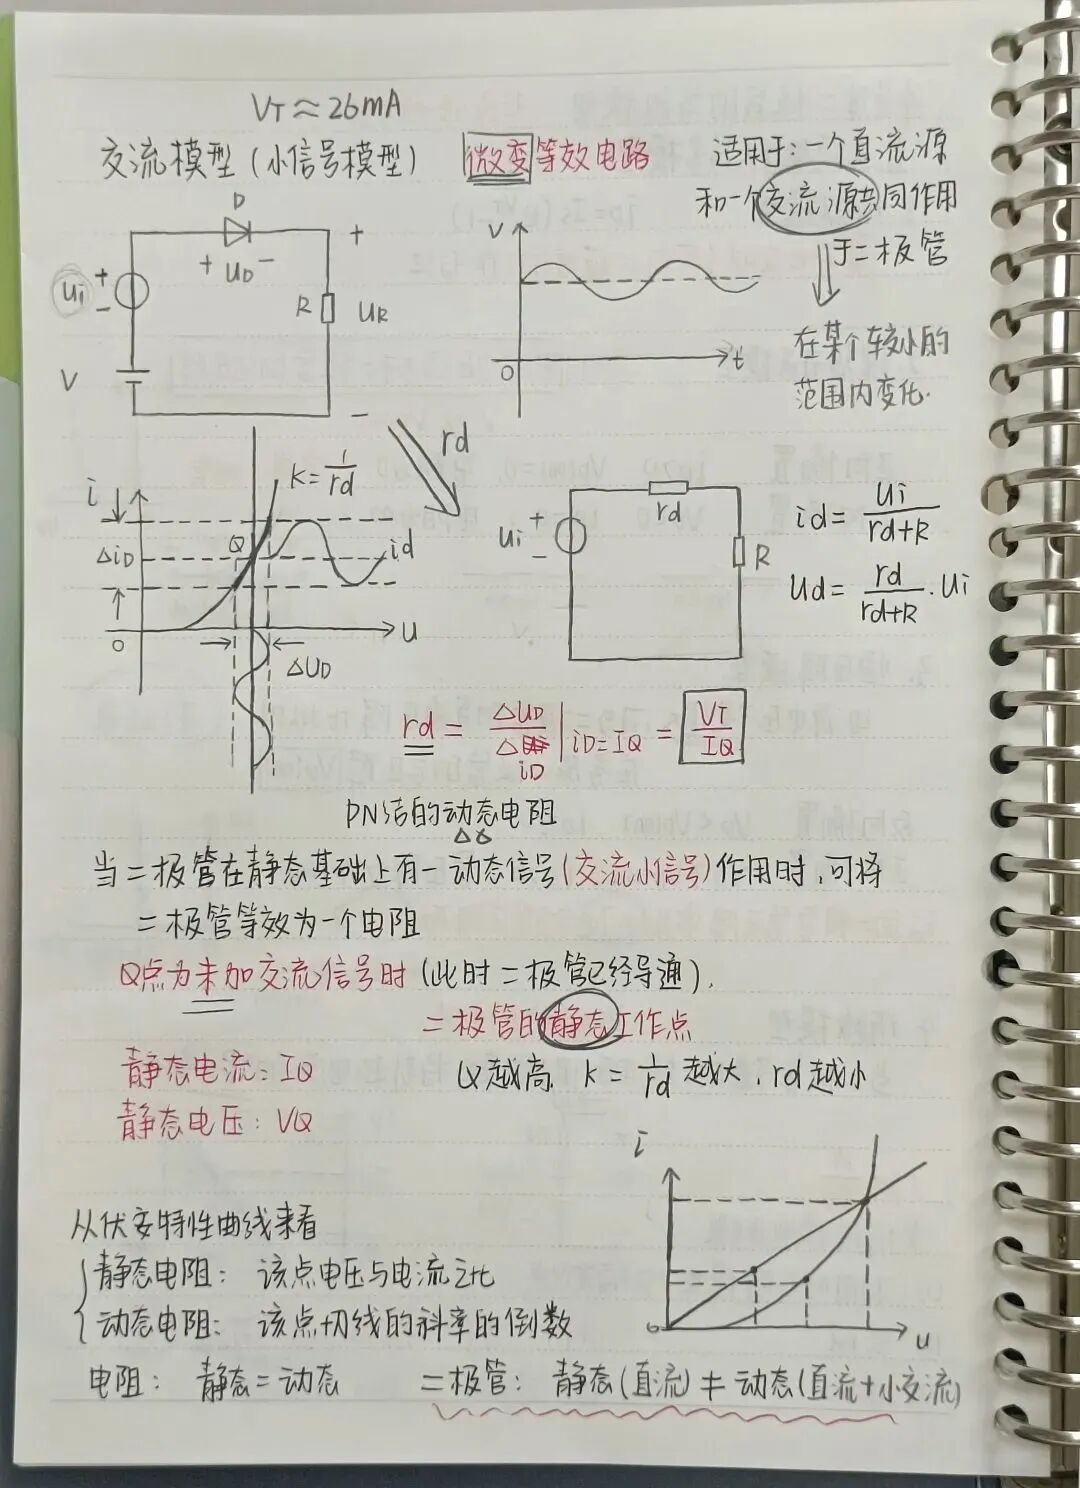 VT≈26mA
交流模型(小信号模型) 微变等效电路 适用于:一个直流源
和一个交流源共同作用
于二极管
在某个较小的
范围内变化.
D
+ UD -
ui + -
V
R
+ UR -
V
O
t
rd
i
K=1/rd
Q
id
△iD
O
u
△UD
ui + -
rd
R
id= ui/(rd+R)
ud= rd/(rd+R)·ui
rd= △UD/△iD |iD=IQ = VT/IQ
PN结的动态电阻
△
当二极管在静态基础上有一动态信号(交流小信号)作用时,可将
二极管等效为一个电阻
Q点为未加交流信号时(此时二极管已经导通),
二极管的静态工作点
静态电流:IQ
Q越高, K=1/rd越大,rd越小
静态电压:VQ
i
u
o
从伏安特性曲线来看
静态电阻: 该点电压与电流之比
动态电阻: 该点切线的斜率的倒数
电阻: 静态=动态 二极管: 静态(直流)≠动态(直流+小交流)